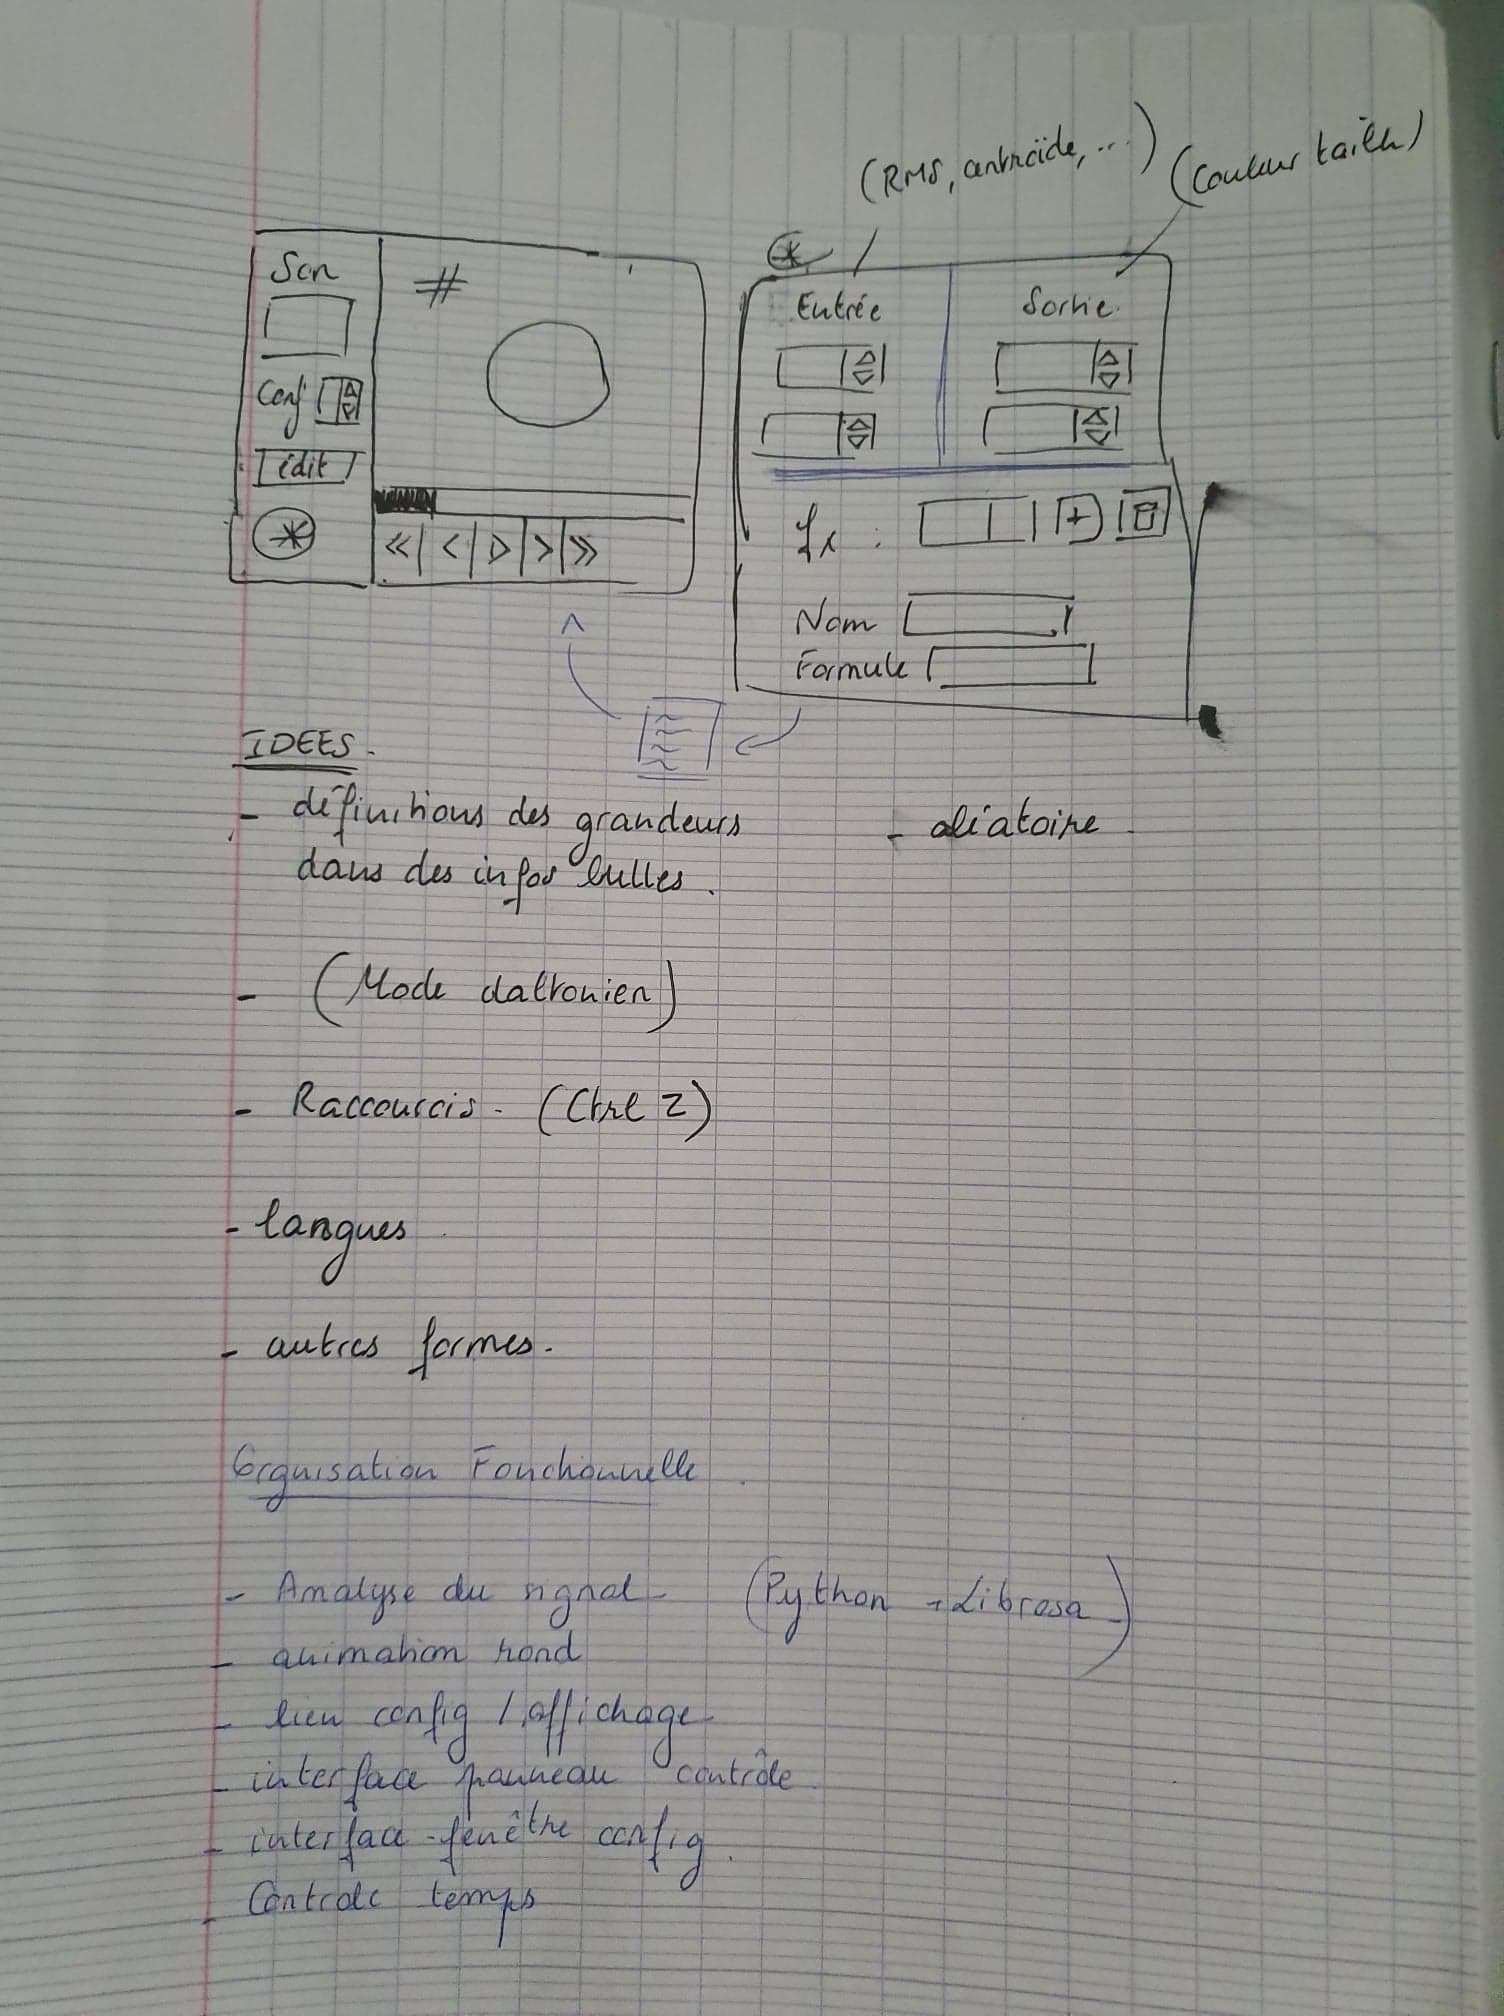 (RMS, centroïde, ...)
(Couleur taille)
Son
#
Conf
édit
<< < > >>
Entrée
Sortie
fx :
+
Nom
Formule
IDEES.
- définitions des grandeurs
dans des infos bulles.
- aléatoire.
- (Mode daltonien)
- Raccourcis. (Ctrl Z)
- langues
- autres formes.
Orgnisation Fonctionnelle
- Analyse du signal (Python - Librosa)
- animation rond
- lien config / affichage
- interface panneau contrôle
- interface fenêtre config.
- Controle temps